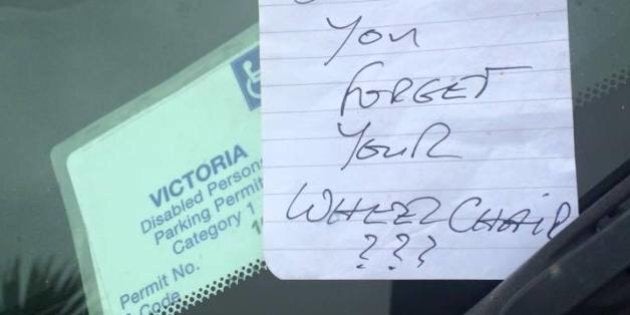 VICTORIA
Disabled Persons
Parking Permit
Category 1
Permit No.
Code
You
FORGET
YOUR
WHEEL CHAIR
???